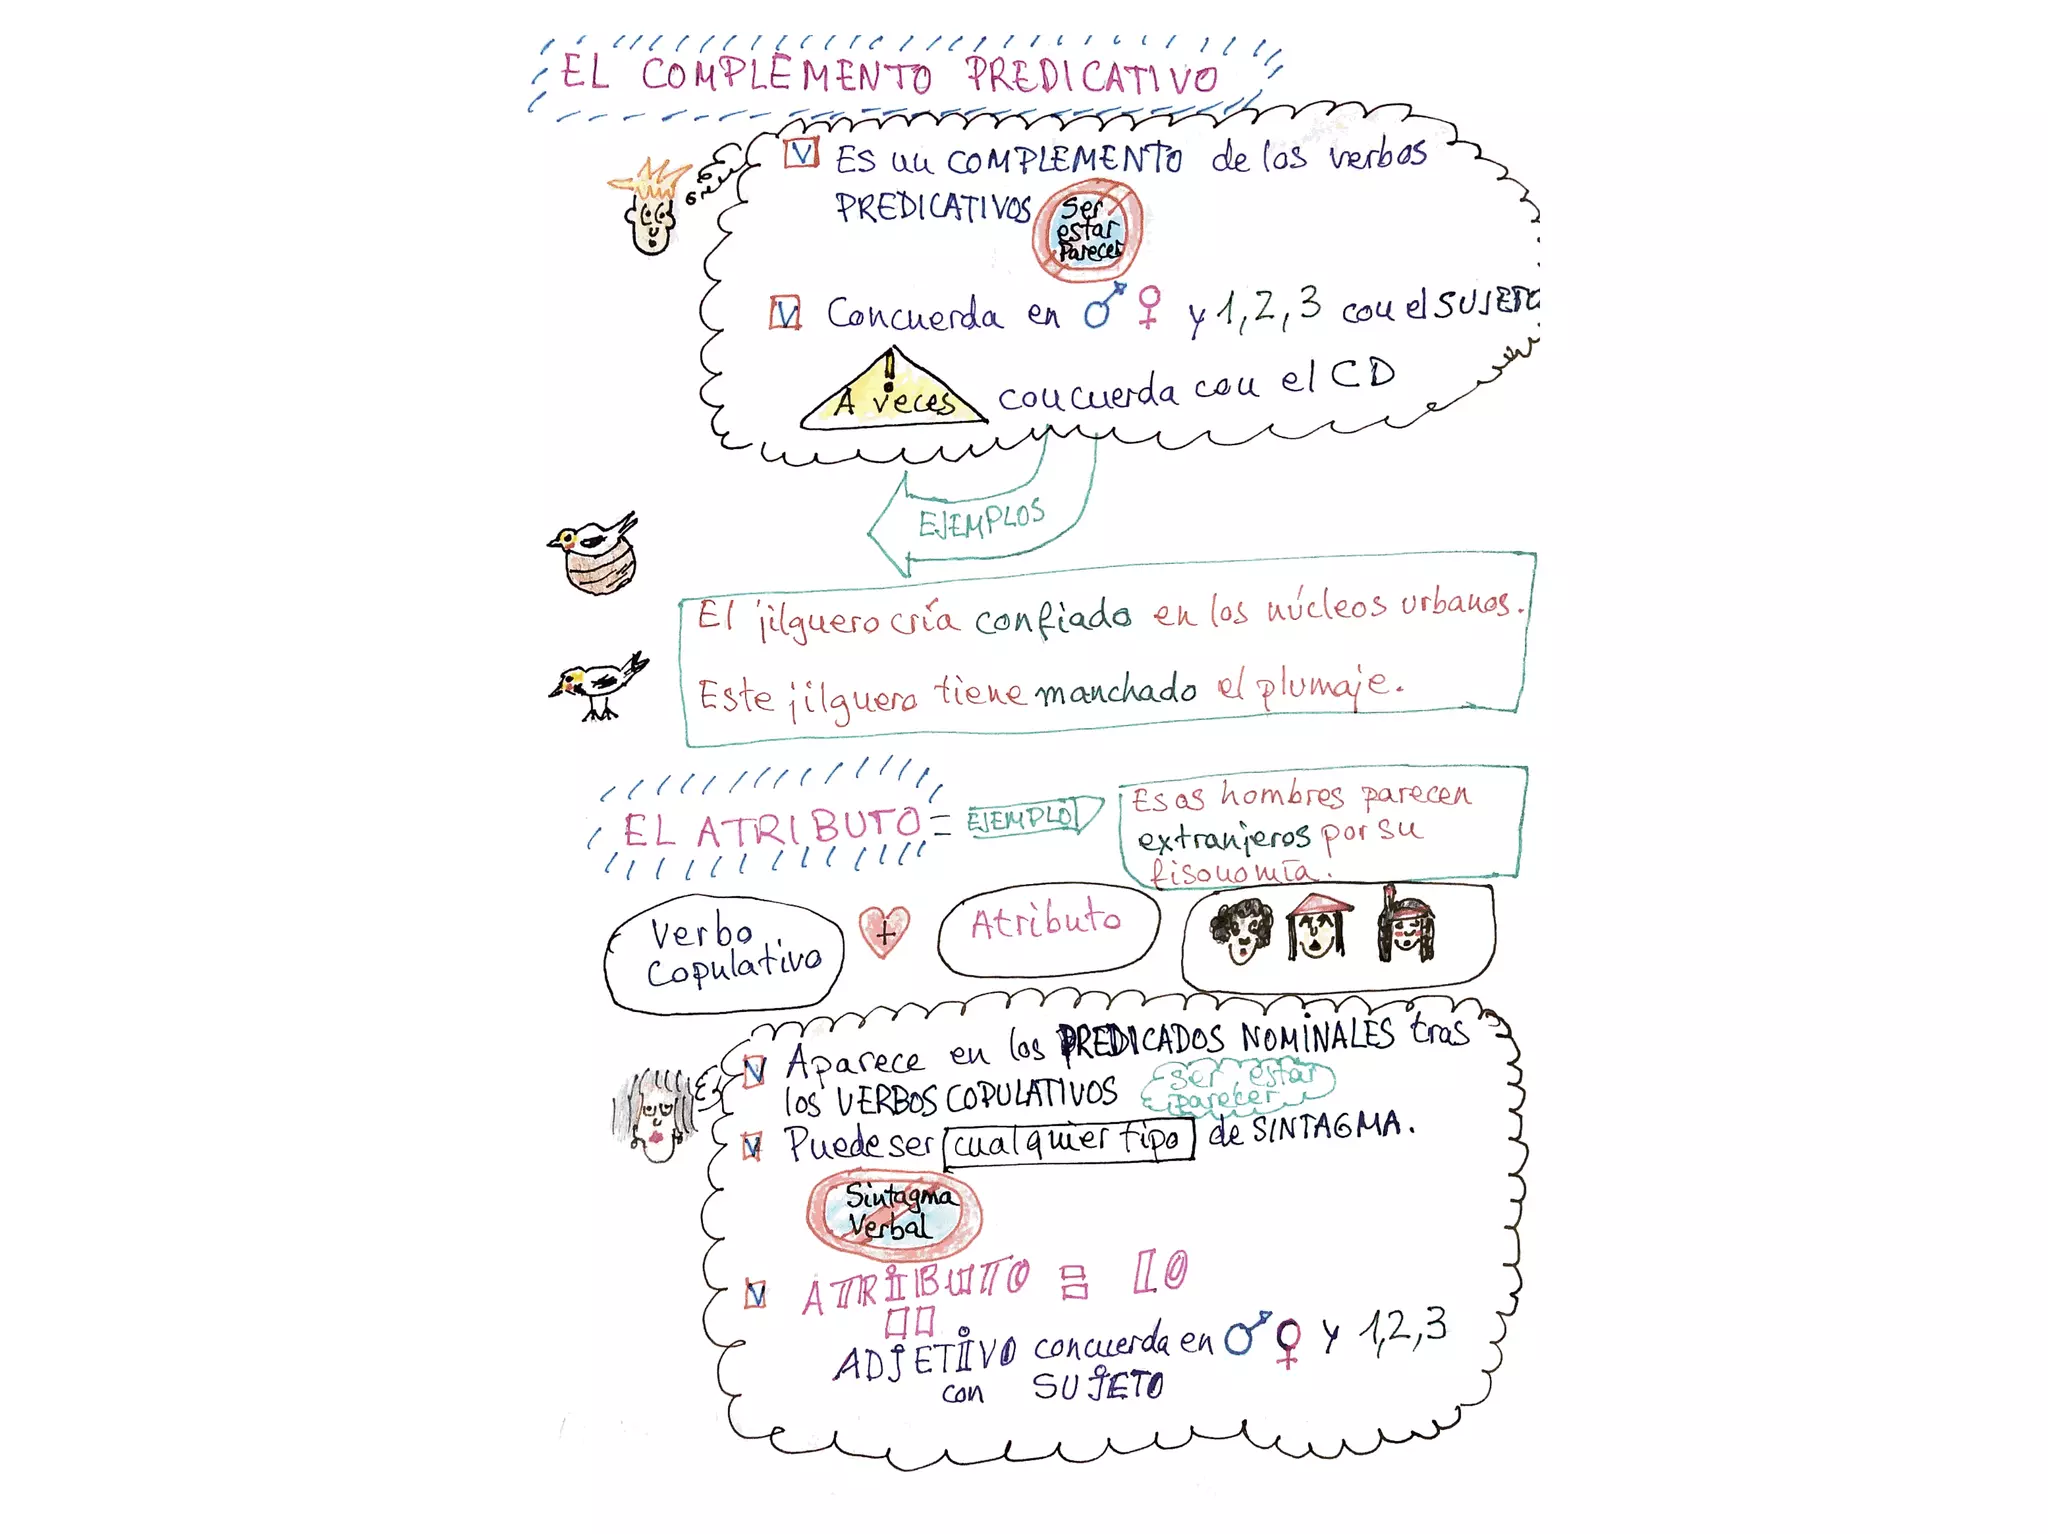 EL COMPLEMENTO PREDICATIVO
V Es un COMPLEMENTO de los verbos
PREDICATIVOS
Ser
estar
Parecer
V Concuerda en ♂ ♀ y 1, 2, 3 con el SUJETO
!
A veces concuerda con el CD
EJEMPLOS
El jilguero cría confiado en los núcleos urbanos.
Este jilguero tiene manchado el plumaje.
EL ATRIBUTO = EJEMPLO
Esos hombres parecen
extranjeros por su
fisonomía.
Verbo
copulativo
+
Atributo
V Aparece en los PREDICADOS NOMINALES tras
los VERBOS COPULATIVOS
ser, estar
parecer
V Puede ser cualquier tipo de SINTAGMA.
Sintagma
Verbal
V ATRIBUTO = LO
ADJETIVO concuerda en ♂ ♀ y 1,2,3
con SUJETO